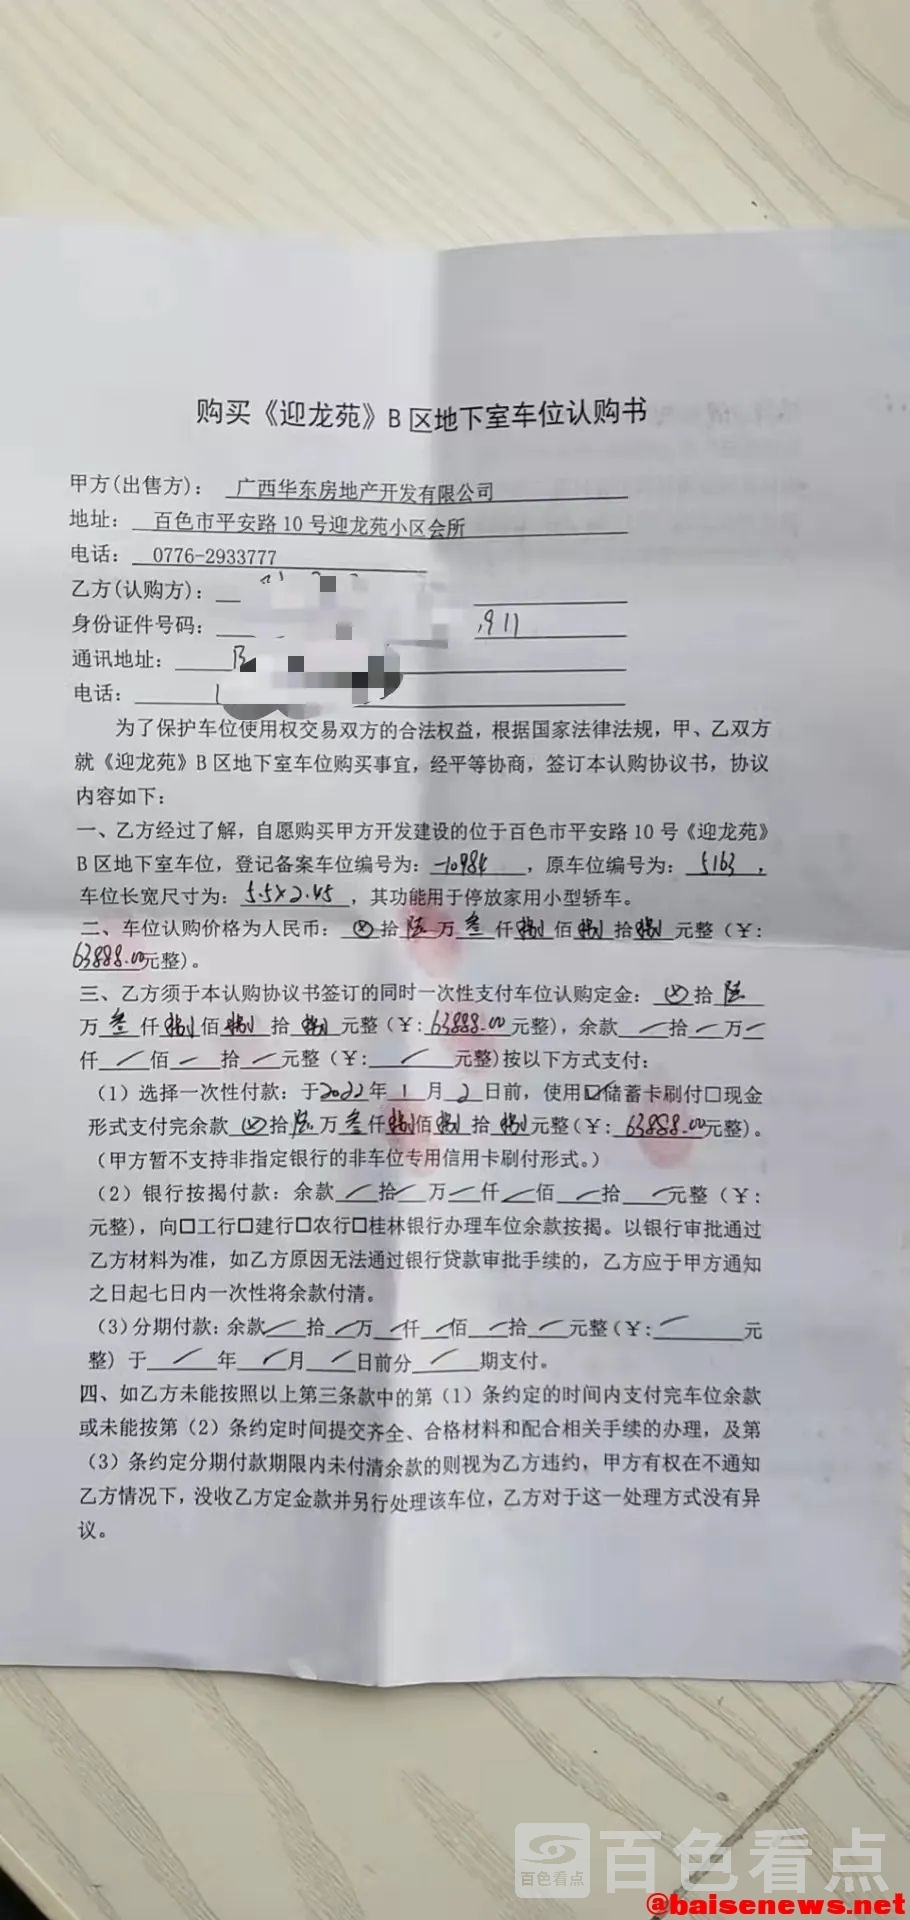 购买《迎龙苑》B区地下室车位认购书
甲方(出售方)： 广西华东房地产开发有限公司
地址： 百色市平安路10号迎龙苑小区会所
电话： 0776-2933777
乙方(认购方)：
身份证件号码： 911
通讯地址：
电话：
为了保护车位使用权交易双方的合法权益，根据国家法律法规，甲、乙双方
就《迎龙苑》B区地下室车位购买事宜，经平等协商，签订本认购协议书，协议
内容如下：
一、乙方经过了解，自愿购买甲方开发建设的位于百色市平安路10号《迎龙苑》
B区地下室车位，登记备案车位编号为：-10984，原车位编号为：5163，
车位长宽尺寸为：5.5×2.45，其功能用于停放家用小型轿车。
二、车位认购价格为人民币：拾陆万叁仟捌佰捌拾捌元整（¥：
63888.00元整）。
三、乙方须于本认购协议书签订的同时一次性支付车位认购定金：拾陆
万叁仟捌佰捌拾捌元整（¥：63888.00元整），余款／拾／万／
仟／佰／拾／元整（¥：／元整)按以下方式支付：
（1）选择一次性付款：于2022年1月2日前，使用☑储蓄卡刷付□现金
形式支付完余款拾陆万叁仟捌佰捌拾捌元整（¥：63888.00元整）。
（甲方暂不支持非指定银行的非车位专用信用卡刷付形式。）
（2）银行按揭付款：余款／拾／万／仟／佰／拾／元整（¥：
元整），向□工行□建行□农行□桂林银行办理车位余款按揭。以银行审批通过
乙方材料为准，如乙方原因无法通过银行贷款审批手续的，乙方应于甲方通知
之日起七日内一次性将余款付清。
（3)分期付款：余款／拾／万／仟／佰／拾／元整（¥：／元
整）于／年／月／日前分／期支付。
四、如乙方未能按照以上第三条款中的第（1）条约定的时间内支付完车位余款
或未能按第（2）条约定时间提交齐全、合格材料和配合相关手续的办理，及第
（3）条约定分期付款期限内未付清余款的则视为乙方违约，甲方有权在不通知
乙方情况下，没收乙方定金款并另行处理该车位，乙方对于这一处理方式没有异
议。
百色看点
百色看点
@baisenews.net